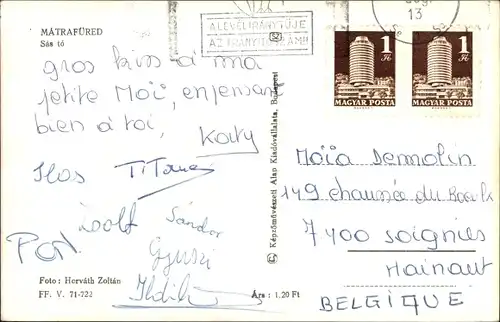 MÁTRAFÜRED
Sás tó
A LEVÉL IRÁNYTŰJE
AZ IRÁNYÍTÓSZÁM!
13
1 Ft
MAGYAR POSTA
1 Ft
MAGYAR POSTA
gros kiss à ma
petite Moï, en pensant
bien à toi,
Katy
Ilos
TiTane
Zsolt Sándor
Pon
Gyuszi
Ildikó
Foto: Horváth Zoltán
FF. V. 71-722
Ára: 1.20 Ft
Képzőművészeti Alap Kiadóvállalata, Budapest
Moïa Demolin
149 chaussée du
7400 Soignies
Hainaut
BELGIQUE